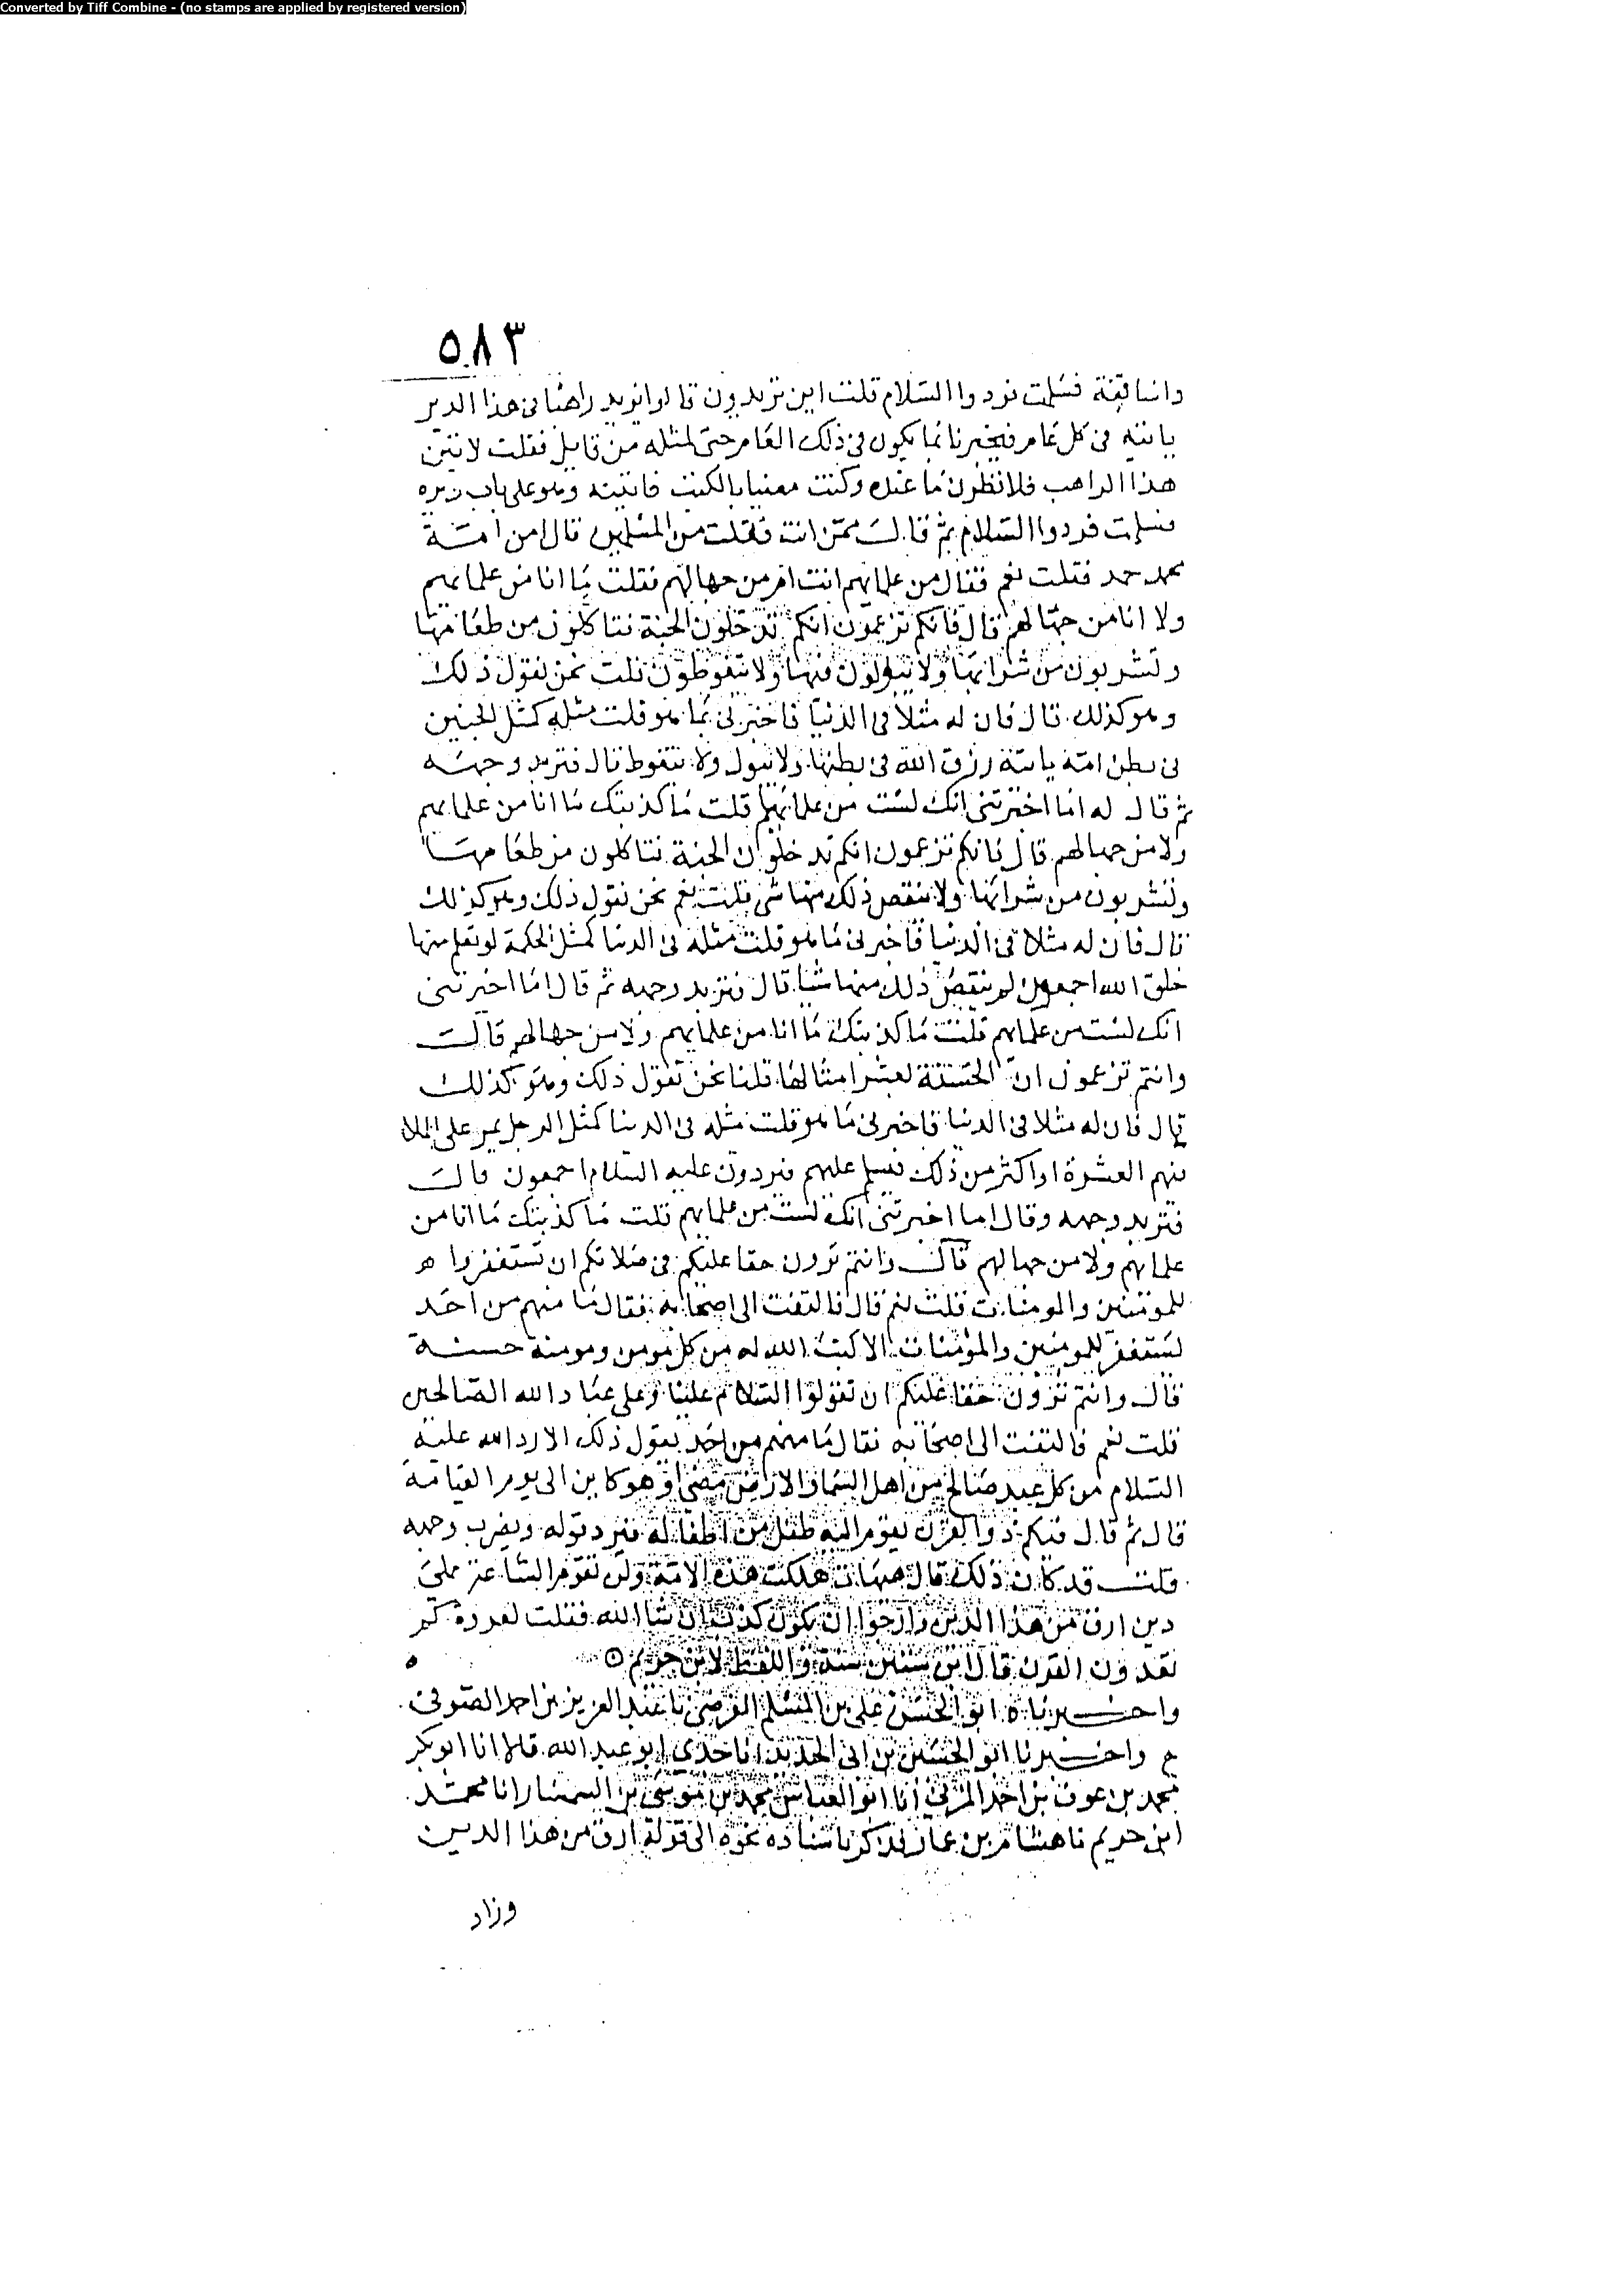 Converted by Tiff Combine - (no stamps are applied by registered version)
٥٨٣
واساقفة فسلمت فردوا السلام قلت اين تريدون قالوا نريد راهبا فى هذا الدير
ياتيه فى كل عام فيخبرنا بما يكون فى ذلك العام حتى لمثله من قابل فقلت لاتين
هذا الراهب فلانظرن ما عنده وكنت معنيا بالكتب فاتيته وهو على باب ديره
فسلمت فردوا السلام ثم قال ممن انت فقلت من المسلمين قال امن امة
محمد فقلت نعم فقال من علمايهم انت ام من جهالهم فقلت ما انا من علمايهم
ولا انا من جهالهم قال فانكم تزعمون انكم تدخلون الجنة فتاكلون من طعامها
وتشربون من شرابها ولا تبولون فيها ولا تتغوطون قلت نحن نقول ذلك
وهو كذلك قال فان له مثلا فى الدنيا فاخبرنى بما هو قلت مثله كمثل الجنين
فى بطن امه ياتيه رزق الله فى بطنها ولا يبول ولا يتغوط قال فتربد وجهه
ثم قال له اما اخبرتنى انك لست من علمايهم قلت ما كذبتك ما انا من علمايهم
ولا من جهالهم قال فانكم تزعمون انكم تدخلون الجنة فتاكلون من طعامها
وتشربون من شرابها ولا ينقص ذلك منها شى قلت نعم نحن نقول ذلك وهو كذلك
قال فان له مثلا فى الدنيا فاخبرنى ما هو قلت مثله فى الدنيا كمثل الحكمة لو تعلم منها
خلق الله اجمعون لم ينقص ذلك منها شيا قال فتربد وجهه ثم قال اما اخبرتنى
انك لست من علمايهم قلت ما كذبتك ما انا من علمايهم ولا من جهالهم قال
وانتم تزعمون ان الحسنة بعشر امثالها قلنا نحن نقول ذلك وهو كذلك
قال فان له مثلا فى الدنيا فاخبرنى ما هو قلت مثله فى الدنيا كمثل الرجل يمر على الملا
فيهم العشرة او اكثر من ذلك فيسلم عليهم فيردون عليه السلام اجمعون قال
فتربد وجهه وقال اما اخبرتنى انك لست من علمايهم قلت ما كذبتك ما انا من
علمايهم ولا من جهالهم قال وانتم ترون حقا عليكم فى صلاتكم ان تستغفروا
للمومنين والمومنات قلت نعم قال فالتفت الى اصحابه فقال ما منهم من احد
يستغفر للمومنين والمومنات الا كتب الله له من كل مومن ومومنة حسنة
قال وانتم ترون حقا عليكم ان تقولوا السلام علينا وعلى عباد الله الصالحين
قلت نعم فالتفت الى اصحابه فقال ما منهم من احد يقول ذلك الا رد الله عليه
السلام من كل عبد صالح من اهل السما والارض مضى او هو كاين الى يوم القيامة
قال ثم قال فيكم ذوا القرن يقوم اليه طفل من اطفاله فيرد قوله ويضرب وجهه
قلت قد كان ذلك قال هيهات هلكت هذه الامة ولن تقوم الساعة على
دين ارق من هذا الدين وارجوا ان يكون كذب ان شا الله فقلت لعروة كم
تعدون القرن قال ابن ستين سنة واللفظ لابن خريم
واخبرناه ابو الحسن على بن المسلم الفرضى نا عبد العزيز بن احمد الصوفى
ح واخبرنا ابو الحسين بن ابى الحديد انا جدى ابو عبد الله قالا انا ابو بكر
محمد بن عوف بن احمد المزنى انا ابو العباس محمد بن موسى بن السمسار انا محمد
ابن خريم نا هشام بن عمار فذكر باسناده نحوه الى قوله ارق من هذا الدين
وزاد